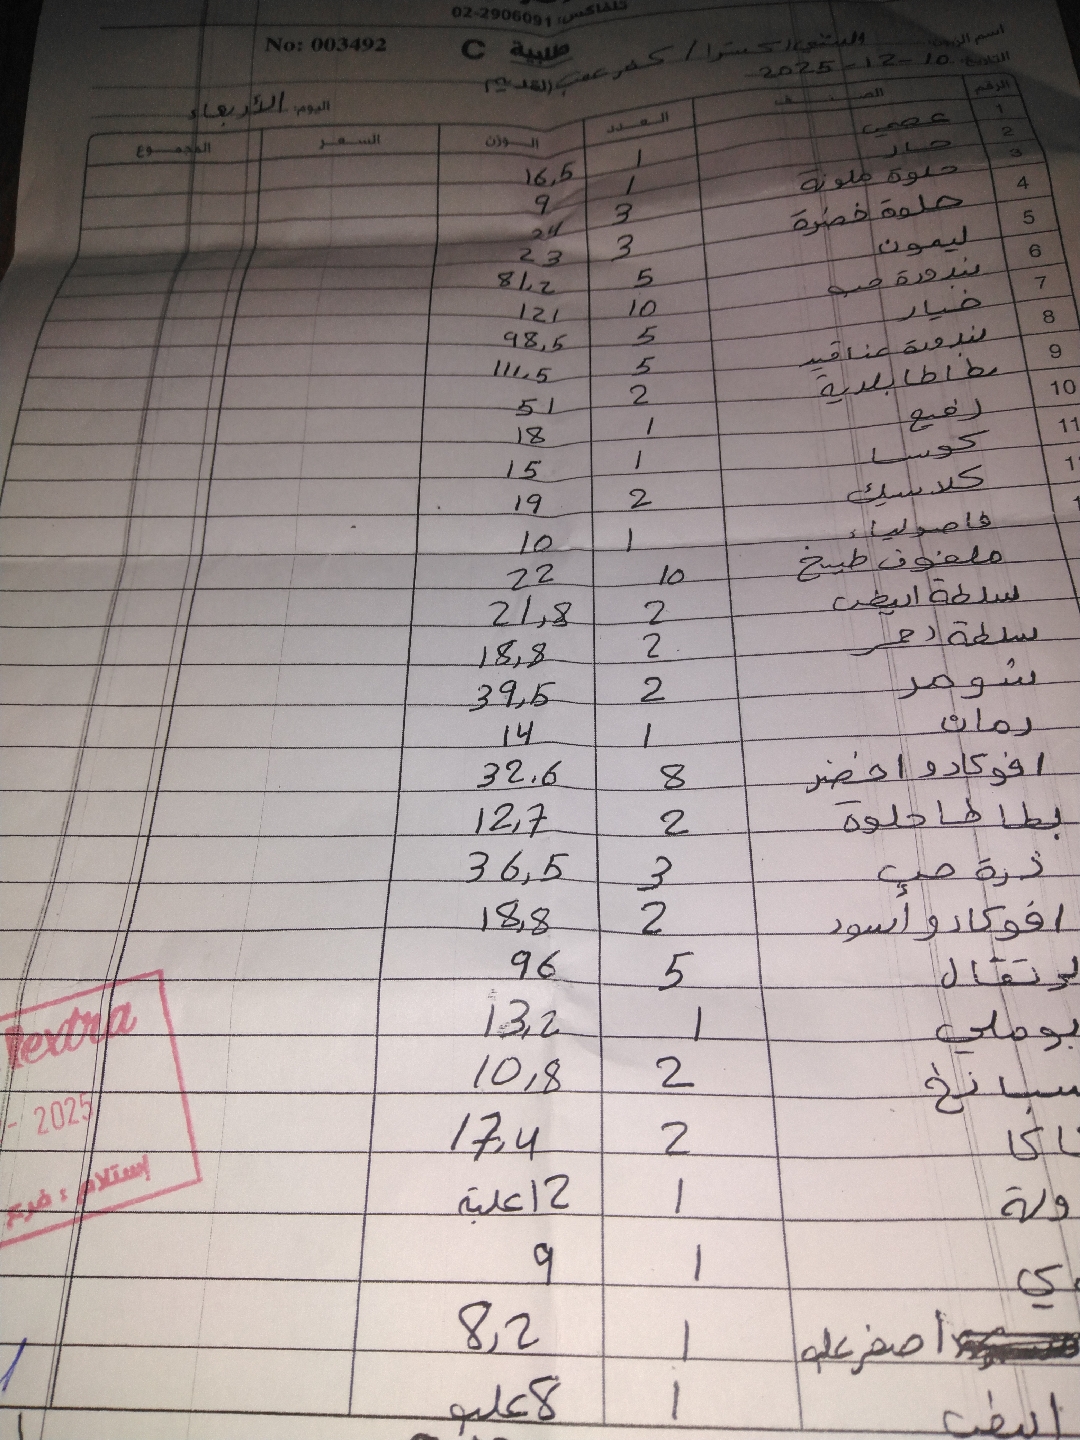 تلفاكس: 02-2906091
No: 003492 طلبية C
اسم الزبون: / كفر عقب القديم
التاريخ: 2025-12-10
اليوم: الأربعاء
الرقم الصنف العدد الوزن السعر المجموع
1 عصير 1 16,5
2 حار 1 9
3 حلوة ملونة 3 24
4 حلوة خضرة 3 23
5 ليمون 5 81,2
6 بندورة حب 10 121
7 خيار 5 98,5
8 بندورة عناقيد 5 111,5
9 بطاطا بلدية 2 51
10 رفيع 1 18
11 كوسا 1 15
كلاسيك 2 19
فاصولياء 1 10
ملفوف طبيخ 10 22
سلطة ابيض 2 21,8
سلطة احمر 2 18,8
شومر 2 39,5
رمان 1 14
افوكادو اخضر 8 32.6
بطاطا حلوة 2 12,7
ذرة حب 3 36,5
افوكادو أسود 2 18,8
برتقال 5 96
بوملي 1 13,2
سبانخ 2 10,8
2 17,4
1 12 علبة
1 9
اصفر علب 1 8,2
ابيض 1 8 علب
extra
- 2025
إستلام : فرع